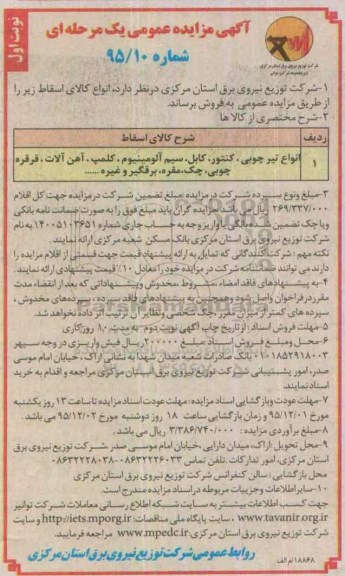 آگهی مزایده عمومی یک مرحله ای
شماره ۹۵/۱۰
نوبت اول
شرکت توزیع نیروی برق استان مرکزی
۱-شرکت توزیع نیروی برق استان مرکزی درنظر دارد، انواع کالای اسقاط زیر را
از طریق مزایده عمومی به فروش برساند.
۲-شرح مختصری از کالا ها
ردیف
شرح کالای اسقاط
۱
انواع تیر چوبی، کنتور، کابل، سیم آلومینیوم، کلمپ، آهن آلات، قرقره
چوبی، جک،مقره، برقگیر و غیره ......
۳-مبلغ ونوع سپرده شرکت در مزایده: مبلغ تضمین شرکت در مزایده جهت کل اقلام
۲۶۹/۳۳۷/۰۰۰ ریال می باشد. مزایده گران باید مبلغ فوق را به صورت ضمانت نامه بانکی
ویا چک تضمین شده بانکی یا واریز وجه به حساب جاری شماره ۱۴۰۰۵۱۰۳۶۵۱ به نام
شرکت توزیع نیروی برق استان مرکزی بانک مسکن شعبه مرکزی ارائه نمایند.
نکته مهم: شرکت کنندگانی که تمایل به ارائه پیشنهاد قیمت جهت قسمتی از اقلام مزایده را
دارند می توانند ضمانتنامه شرکت در مزایده خود را معادل ۱۰٪ قیمت پیشنهادی ارائه نمایند.
۴-به پیشنهادهای فاقد امضاء، مشروط، مخدوش و پیشنهاداتی که بعد از انقضاء مدت
مقرر در فراخوان واصل شود و همچنین به پیشنهادهای فاقد سپرده، سپرده‌های مخدوش،
سپرده های کمتر از میزان مقرر، چک شخصی و نظایر آن ترتیب اثر داده نخواهد شد.
۵-مهلت فروش اسناد: از تاریخ چاپ آگهی نوبت دوم به مدت ۱۰ روز کاری
۶-محل ومبلغ فروش اسناد: مبلغ ۲۰۰۰۰۰ ریال فیش واریزی در وجه سپهر
۰۱۰۱۸۵۲۹۱۸۰۰۳ بانک صادرات شعبه میدان شهدا به نشانی اراک، خیابان امام موسی
صدر، امور پشتیبانی شرکت توزیع نیروی برق استان مرکزی مراجعه و اقدام به خرید
اسناد نمایند.
۷-مهلت عودت وبازگشایی اسناد مزایده: مهلت عودت اسناد مزایده تا ساعت ۱۳ روز یکشنبه
مورخ ۹۵/۱۲/۰۱ و زمان بازگشایی ساعت ۱۸ روز دوشنبه مورخ ۹۵/۱۲/۰۲ می باشد.
۸-مبلغ برآوردی مزایده: ۳/۳۸۶/۷۴۰/۰۰۰ ریال می باشد.
۹-محل تحویل: اراک، میدان دارایی، خیابان امام موسی صدر شرکت توزیع نیروی برق
استان مرکزی، امور تدارکات .تلفن تماس ۰۸۶۳۲۲۲۶۰۳۳-۰۸۶۳۲۲۲۸۰۳۸
محل بازگشایی، سالن کنفرانس شرکت توزیع نیروی برق استان مرکزی
۱۰-سایر اطلاعات وجزییات مربوطه در اسناد مزایده مندرج است.
جهت کسب اطلاعات بیشتر به سایت شبکه اطلاع رسانی معاملات شرکت توانیر
www.tavanir.org.ir ، سایت پایگاه ملی مناقصات: http://iets.mporg.ir و سایت
شرکت توزیع نیروی برق استان مرکزی www.mpedc.ir مراجعه فرمایید.
روابط عمومی شرکت توزیع نیروی برق استان مرکزی
۱۸۸۶۸/م الف